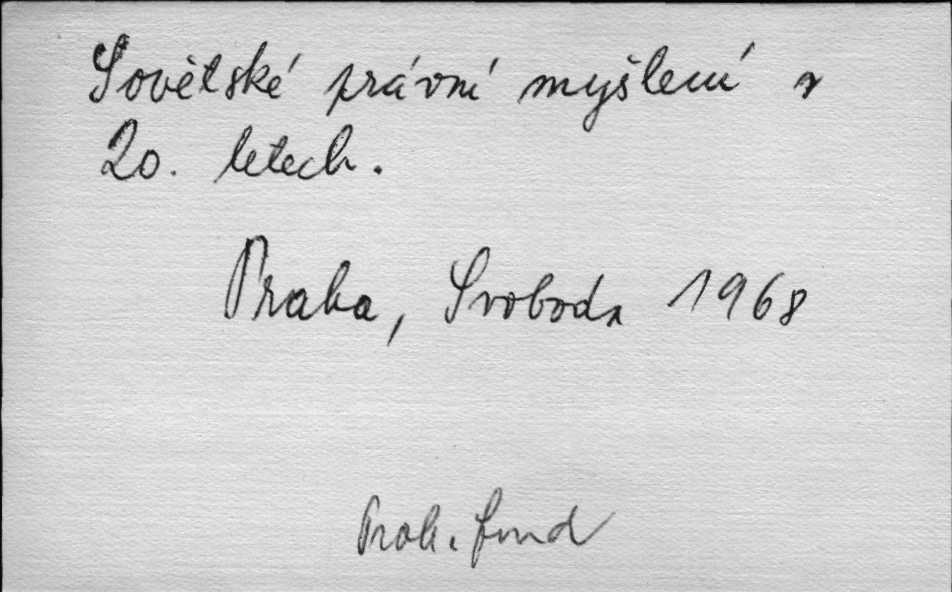 Sovětské právní myšlení v
20. letech.
Praha, Svoboda 1968
fond